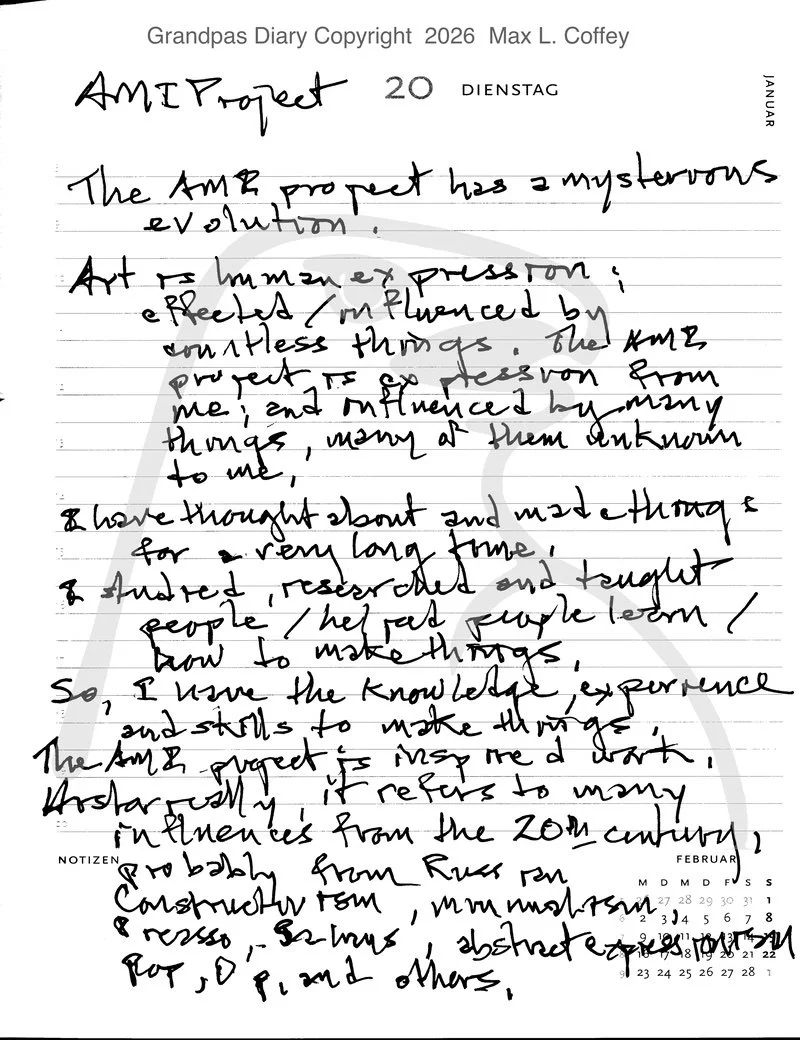 Grandpas Diary Copyright 2026 Max L. Coffey
AMI Project
20 DIENSTAG
JANUAR
The AMI project has a mysterious
evolution.
Art is human expression;
effected/influenced by
countless things. The AMI
project is expression from
me; and influenced by many
things, many of them unknown
to me.
I have thought about and made things
for a very long time.
I studied, researched and taught
people/helped people learn/
how to make things.
So, I have the knowledge, experience
and skills to make things.
The AMI project is inspired work.
Historically, it refers to many
influences from the 20th century,
NOTIZEN
probably from Russian
Constructivism, minimalism,
Picasso, , abstract expressionism
Pop, Op, and others.
FEBRUAR
M D M D F S S
27 28 29 30 31 1
2 3 4 5 6 7 8
9 10 11 12 13 14 15
16 17 18 19 20 21 22
9 23 24 25 26 27 28 1